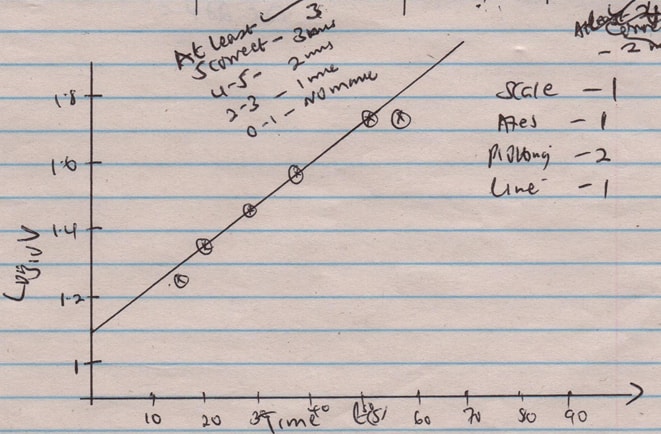 3
At least
5 correct - 3 mks
4-5 - 2 mks
2-3 - 1 mk
0-1 - No mark
At least
Correct
- 2 m
Scale - 1
Axes - 1
Plotting - 2
Line - 1
1.8
1.6
1.4
1.2
1
Log10 V
10 20 30 40 50 60 70 80 90
Time t(s)